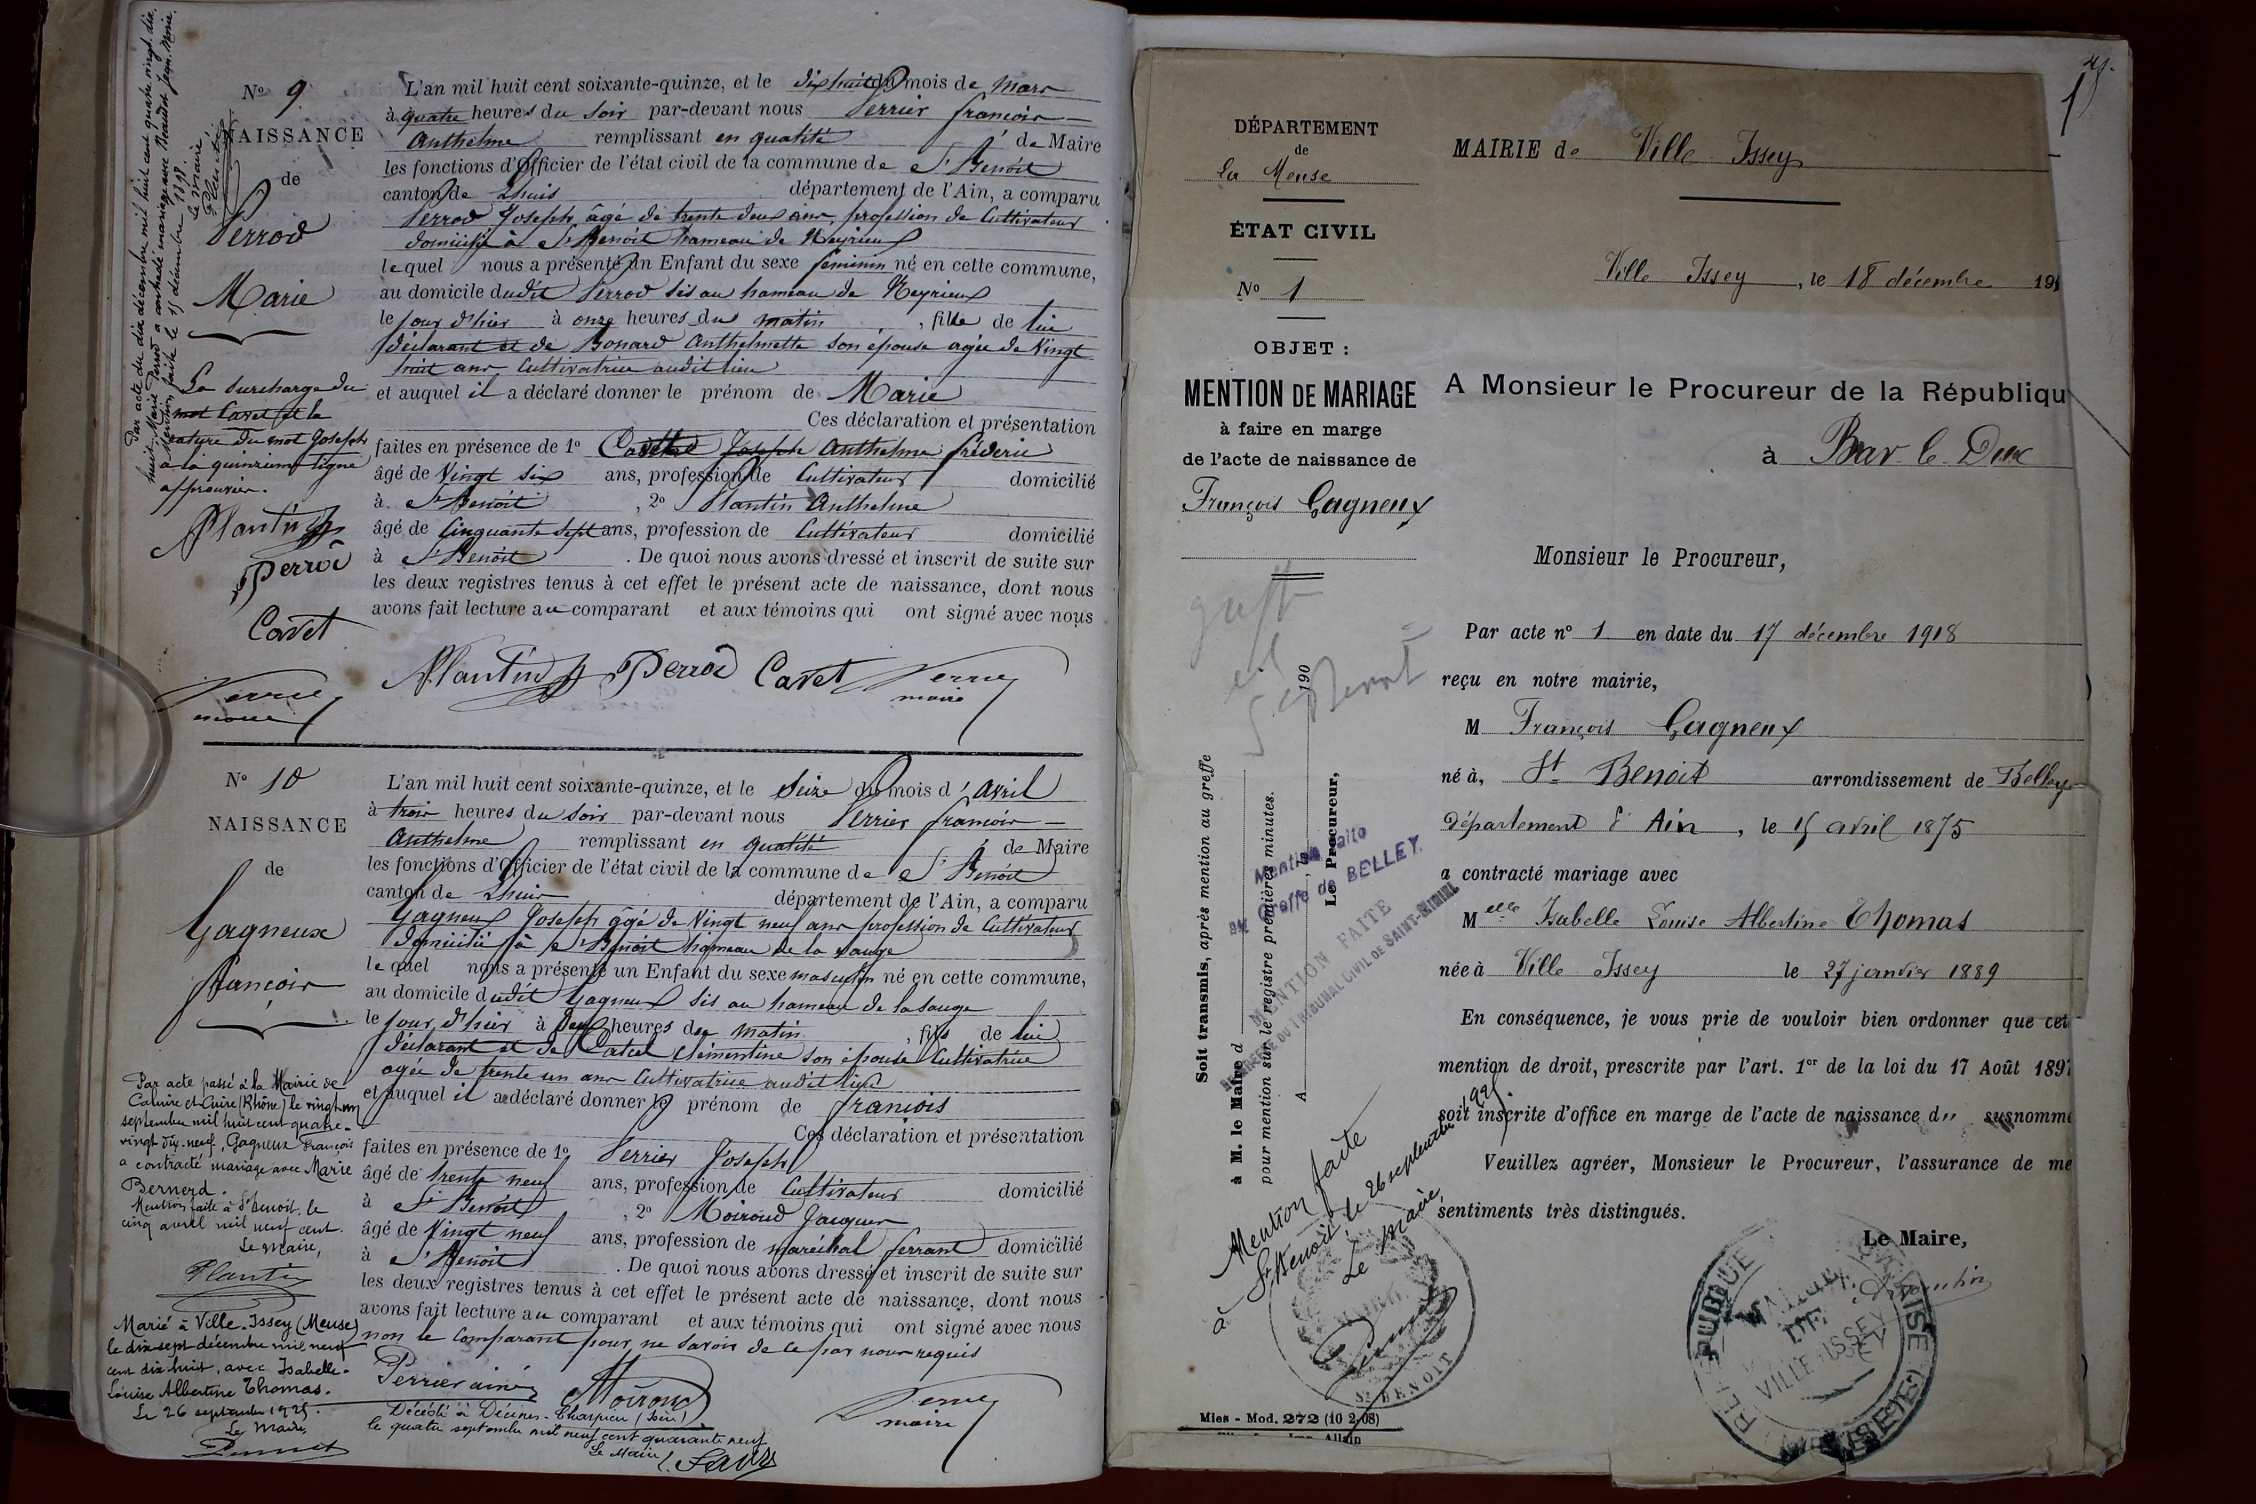 N° 9
NAISSANCE
de
Perrod
Marie
Par acte du dix décembre mil huit cent quatre vingt dix
huit, Marie Perrod a contracté mariage avec Beaudet Jean Marie.
Mention faite le 15 décembre 1898.
Le maire
La surcharge du
mot Cavet et la
rature du mot Joseph
à la quinzième ligne
approuvées.
Plantin
Perrod
Cavet
Perrier
maire
L'an mil huit cent soixante-quinze, et le dix huit du mois de Mars
à quatre heures du soir par-devant nous Perrier françois
Anthelme remplissant en qualité de Maire
les fonctions d'Officier de l'état civil de la commune de St Benoît
canton de Lhuis département de l'Ain, a comparu
Perrod Joseph âgé de trente deux ans, profession de Cultivateur
domicilié à St Benoît hameau de Neyrieux
lequel nous a présenté un Enfant du sexe feminin né en cette commune,
au domicile dudit Perrod sis au hameau de Neyrieux
le jour d'hier à onze heures du matin, fille de lui
déclarant et de Bonard Anthelmette son épouse agée de Vingt
huit ans Cultivatrice audit lieu
et auquel il a déclaré donner le prénom de Marie
Ces déclaration et présentation
faites en présence de 1° Cavet Joseph Anthelme fréderic
âgé de Vingt six ans, profession de Cultivateur domicilié
à St Benoît, 2° Plantin Anthelme
âgé de Cinquante sept ans, profession de Cultivateur domicilié
à St Benoît. De quoi nous avons dressé et inscrit de suite sur
les deux registres tenus à cet effet le présent acte de naissance, dont nous
avons fait lecture au comparant et aux témoins qui ont signé avec nous
Plantin Perrod Cavet Perrier
maire
N° 10
NAISSANCE
de
Gagneux
françois
Par acte passé à la Mairie de
Caluire et Cuire (Rhône) le vingt un
septembre mil huit cent quatre-
vingt dix-neuf, Gagneux François
a contracté mariage avec Marie
Bernerd.
Mention faite à St Benoit, le
cinq avril mil neuf cent.
Le Maire,
Plantin
Marié à Ville-Issey (Meuse)
le dix sept décembre mil neuf
cent dix huit, avec Isabelle-
Louise Albertine Thomas.
Le 26 septembre 1925.
Le Maire,
L'an mil huit cent soixante-quinze, et le Seize du mois d'Avril
à trois heures du soir par-devant nous Perrier françois
Anthelme remplissant en qualité de Maire
les fonctions d'Officier de l'état civil de la commune de St Benoît
canton de Lhuis département de l'Ain, a comparu
Gagneux Joseph âgé de Vingt neuf ans profession de Cultivateur
domicilié à St Benoît hameau de la sauge
lequel nous a présenté un Enfant du sexe masculin né en cette commune,
au domicile dudit Gagneux sis au hameau de la sauge
le jour d'hier à deux heures du matin, fils de lui
déclarant et de Catcel Clémentine son épouse Cultivatrice
agée de trente un ans Cultivatrice audit lieu
et auquel il a déclaré donner le prénom de françois
Ces déclaration et présentation
faites en présence de 1° Perrier Joseph
âgé de trente neuf ans, profession de Cultivateur domicilié
à St Benoît, 2° Moiroud Jacques
âgé de Vingt neuf ans, profession de maréchal ferrant domicilié
à St Benoît. De quoi nous avons dressé et inscrit de suite sur
les deux registres tenus à cet effet le présent acte de naissance, dont nous
avons fait lecture au comparant et aux témoins qui ont signé avec nous
non le Comparant pour ne savoir de ce par nous requis
Perrier ainé Moiroud Perrier
maire
Décédé à Décines-Charpieu (Isère)
le quatre septembre mil neuf cent quarante neuf
Le Maire
DÉPARTEMENT
de
La Meuse
ÉTAT CIVIL
N° 1
OBJET :
MENTION DE MARIAGE
à faire en marge
de l'acte de naissance de
François Gagneux
greffe
St Benoit
Soit transmis, après mention au greffe
à M. le Maire d
pour mention sur le registre premières minutes.
A , le 190
Le Procureur,
Mention faite
au Greffe de BELLEY.
MENTION FAITE
AU GREFFE DU TRIBUNAL CIVIL DE SAINT-MIHIEL
Mention faite
à St Benoît le 26 septembre 1925
Le Maire,
MAIRIE
St BENOIT
Mies - Mod. 272 (10 2/08)
Imp. Allain
MAIRIE de Ville-Issey
Ville-Issey, le 18 décembre 191
A Monsieur le Procureur de la Républiqu
à Bar-le-Duc
Monsieur le Procureur,
Par acte n° 1 en date du 17 décembre 1918
reçu en notre mairie,
M François Gagneux
né à, St Benoit arrondissement de Belley
département d' Ain, le 15 avril 1875
a contracté mariage avec
Melle Isabelle Louise Albertine Thomas
née à Ville Issey le 27 janvier 1889
En conséquence, je vous prie de vouloir bien ordonner que cet
mention de droit, prescrite par l'art. 1er de la loi du 17 Août 1897
soit inscrite d'office en marge de l'acte de naissance d" susnommé
Veuillez agréer, Monsieur le Procureur, l'assurance de me
sentiments très distingués.
Le Maire,
RÉPUBLIQUE FRANÇAISE
MAIRIE
DE
VILLE-ISSEY
(MEUSE)